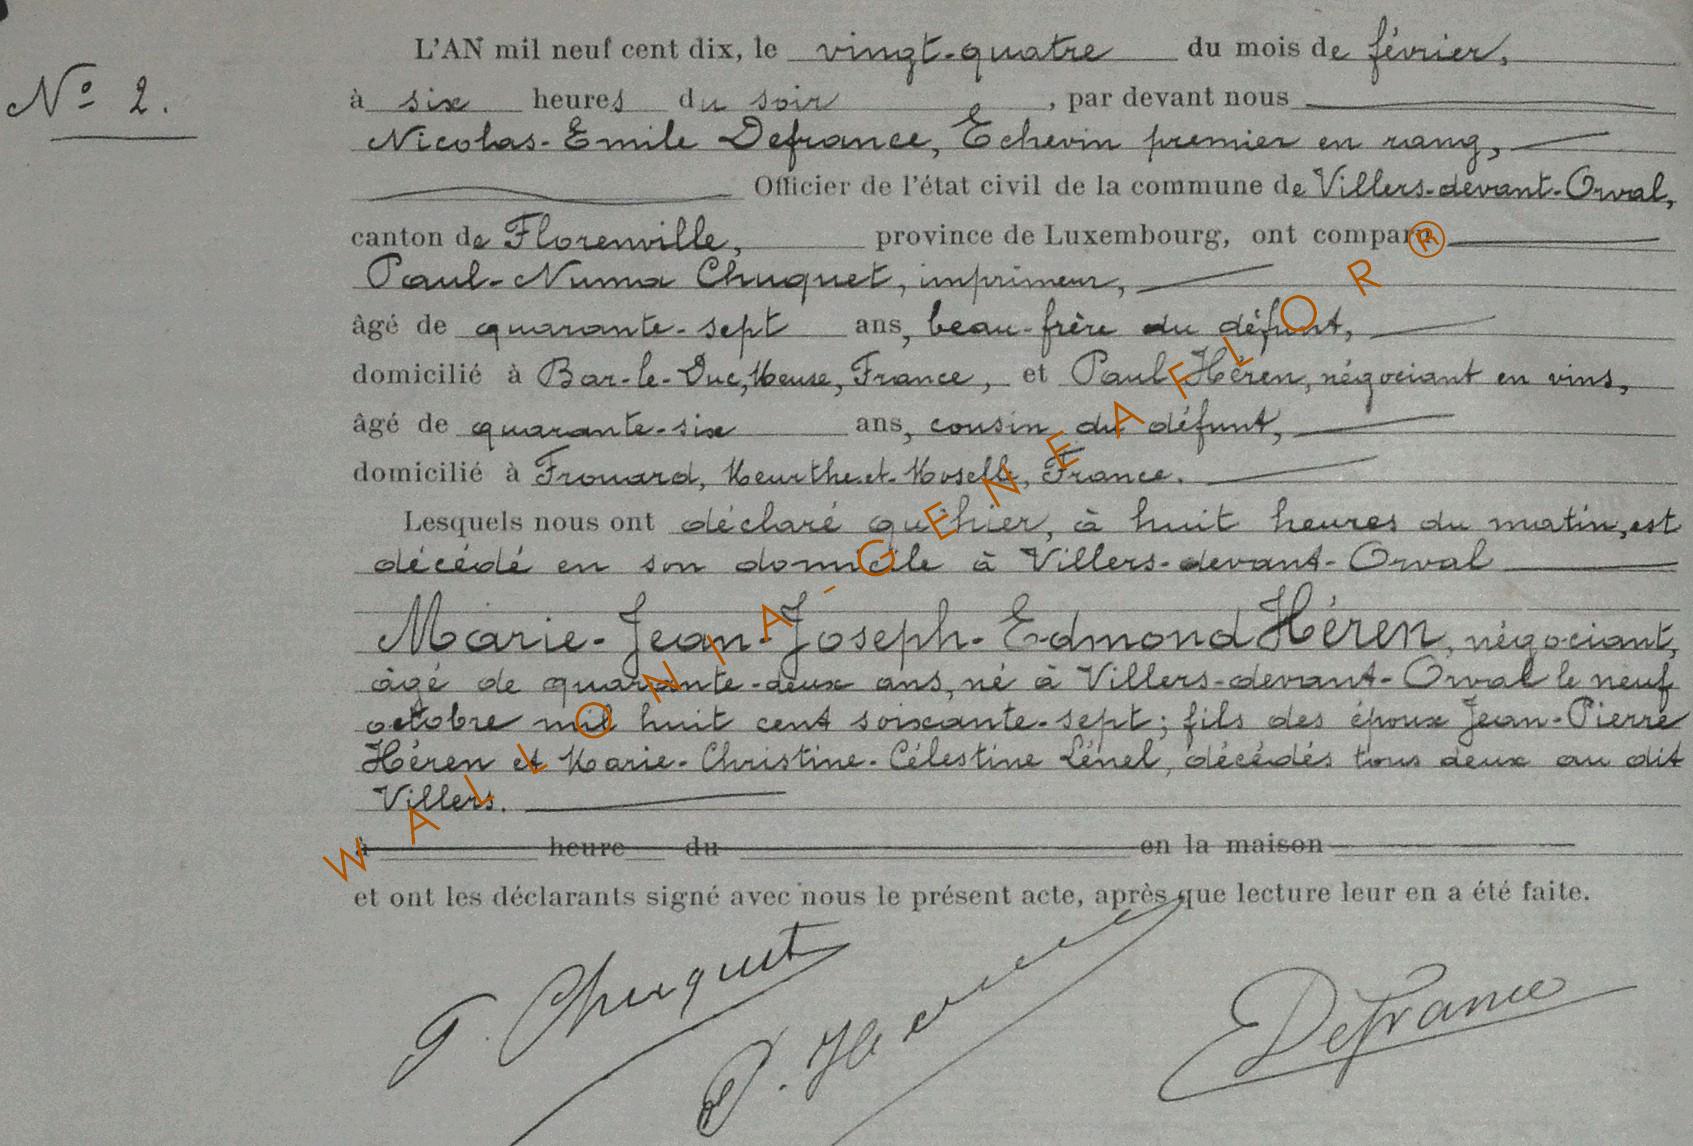 L'AN mil neuf cent dix, le vingt-quatre du mois de février,
N° 2.
à six heures du soir, par devant nous
Nicolas-Emile Defrance, Echevin premier en rang,
Officier de l'état civil de la commune de Villers-devant-Orval,
canton de Florenville, province de Luxembourg, ont comparu
Paul-Numa Chuquet, imprimeur,
âgé de quarante-sept ans, beau-frère du défunt,
domicilié à Bar-le-Duc, Meuse, France, et Paul Héren, négociant en vins,
âgé de quarante-six ans, cousin du défunt,
domicilié à Frouard, Meurthe-et-Moselle, France.
Lesquels nous ont déclaré qu'hier, à huit heures du matin, est
décédé en son domicile à Villers-devant-Orval
Marie-Jean-Joseph-Edmond Héren, négociant,
âgé de quarante-deux ans, né à Villers-devant-Orval le neuf
octobre mil huit cent soixante-sept; fils des époux Jean-Pierre
Héren et Marie-Christine-Célestine Lénel, décédés tous deux au dit
Villers.
à heure du en la maison
et ont les déclarants signé avec nous le présent acte, après que lecture leur en a été faite.
P. Chuquet P. Héren EDefrance
WALLONIA-GENEAFLOR®